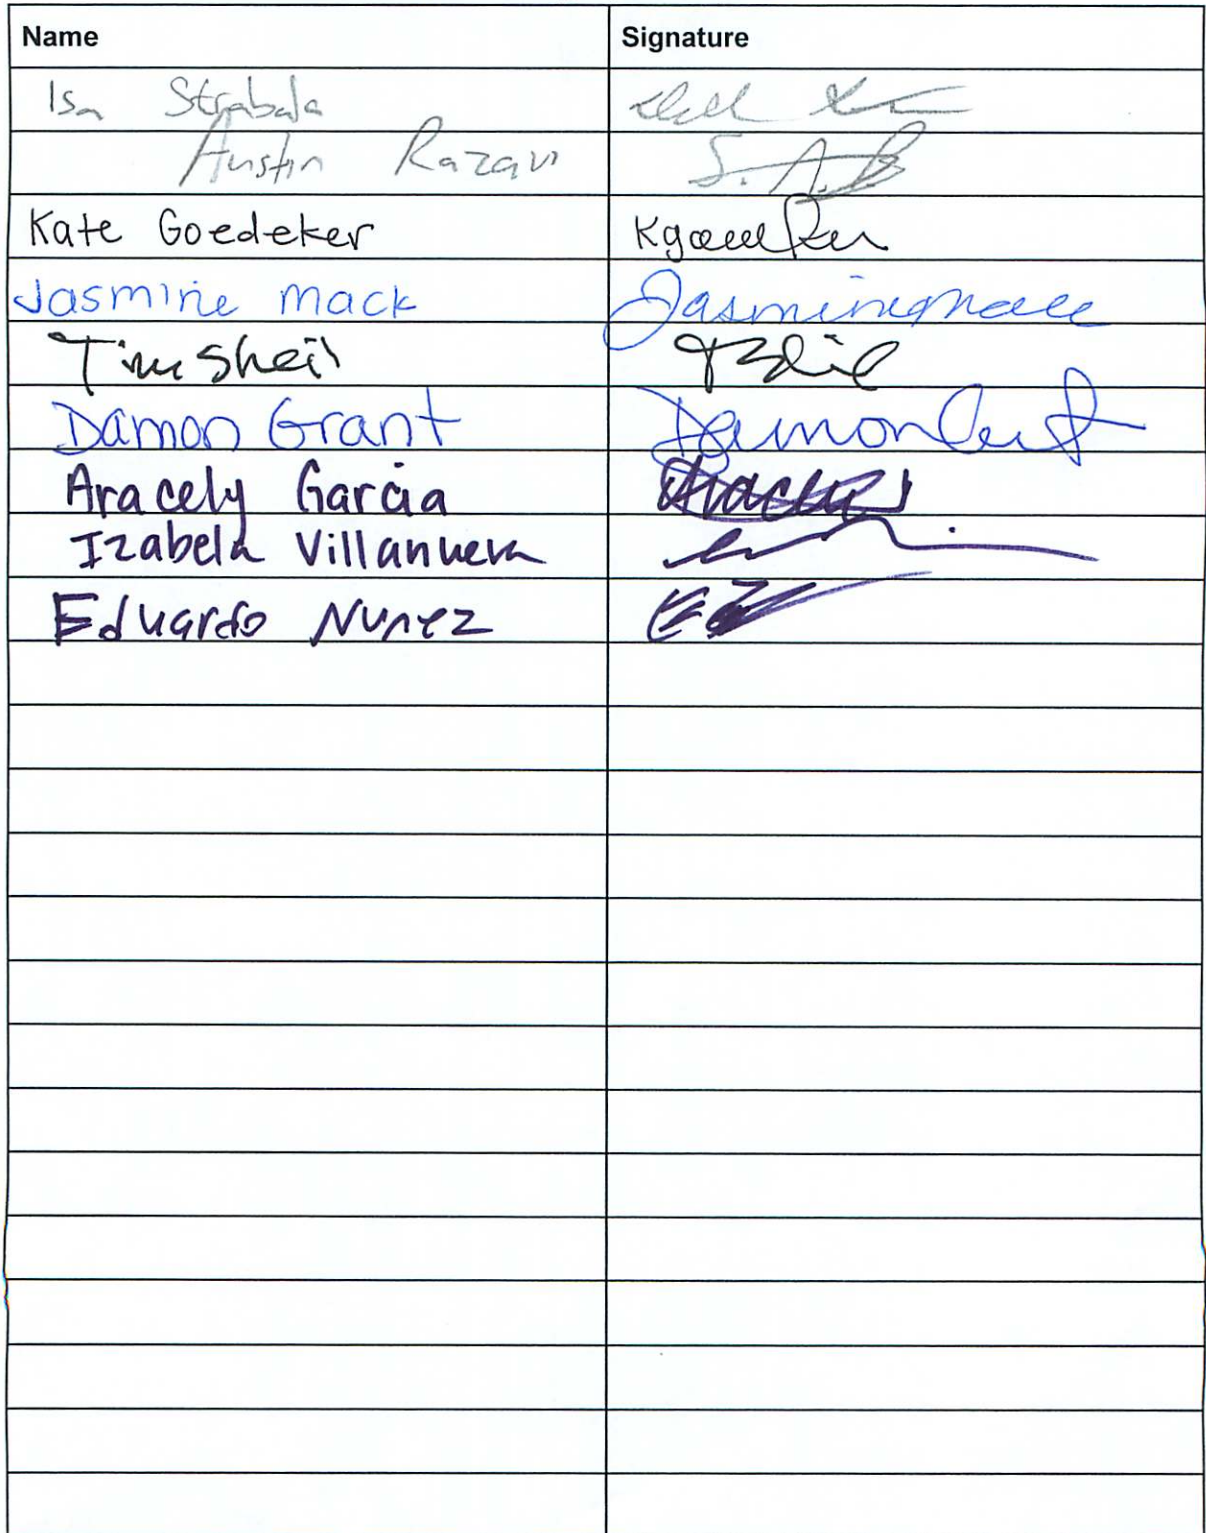 Name Signature
Isa Strabala
Austin Razavi S. A.
Kate Goedeker
Jasmine Mack Jasmine Mack
Tim Sheil
Damon Grant Damon
Aracely Garcia Aracely
Izabela Villanueva
Eduardo Nunez